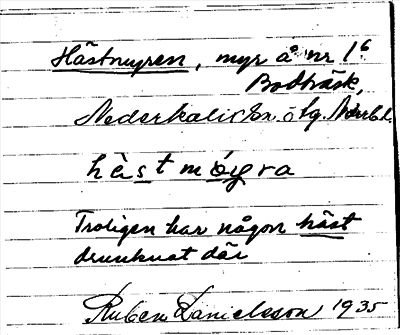 Hästmyren, myr å nr 1⁶
Bodträsk,
Nederkalix sn. ö lg. Norrb. l.
hȧ̀s t m ó̤y̤ra
Troligen har någon häst
drunknat där
Ruben Danielsson 1935